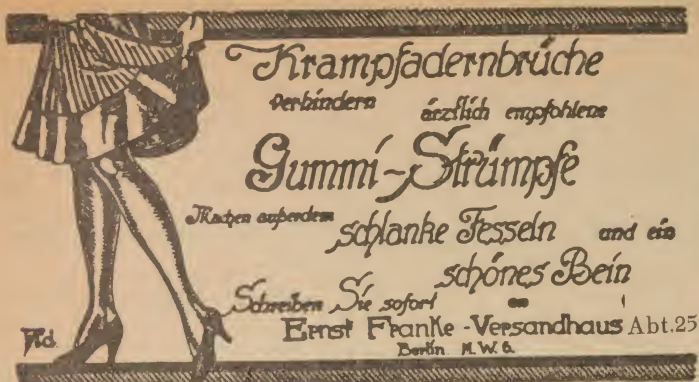 Krampfadernbrüche
verhindern ärztlich empfohlene
Gummi-Strümpfe
Machen außerdem schlanke Fesseln und ein
schönes Bein
Schreiben Sie sofort an
Ernst Franke-Versandhaus Abt. 25
Berlin N.W. 6.